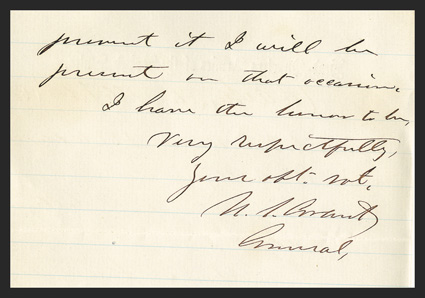 prevent it I will be
present on that occasion.
I have the honor to be,
Very respectfully,
Your obt. svt.
U. S. Grant
General,